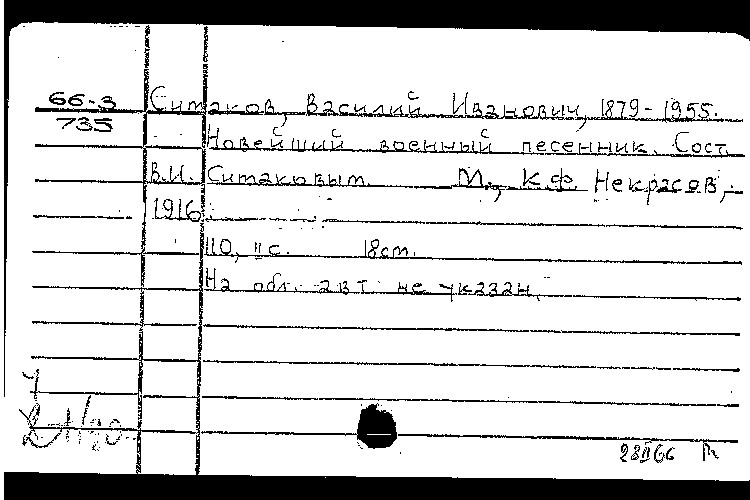 66-3 Ситаков, Василий Иванович, 1879-1955.
735 Новейший военный песенник. Сост.
В.И. Ситаковым. М., К.Ф. Некрасов,
1916.
110, II с. 18 см.
На обл. авт. не указан.
28 II 66